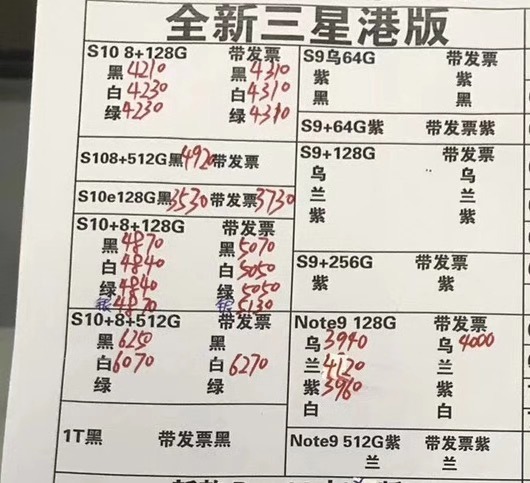 全新三星港版
S10 8+128G 带发票
黑4210 黑4310
白4230 白4310
绿4230 绿4310
S108+512G黑4920带发票
S10e128G黑3530带发票3730
S10+8+128G 带发票
黑4870 黑5070
白4840 白5050
绿4840 绿5050
银4870 银5130
S10+8+512G 带发票
黑6250 黑
白6070 白6270
绿 绿
1T黑 带发票黑
S9乌64G 带发票
紫 紫
黑 黑
S9+64G紫 带发票紫
S9+128G 带发票
乌 乌
兰 兰
紫 紫
S9+256G 带发票
紫 紫
Note9 128G 带发票
乌3940 乌4000
兰4120 兰
紫3960 紫
白 白
Note9 512G紫 带发票紫
兰 兰